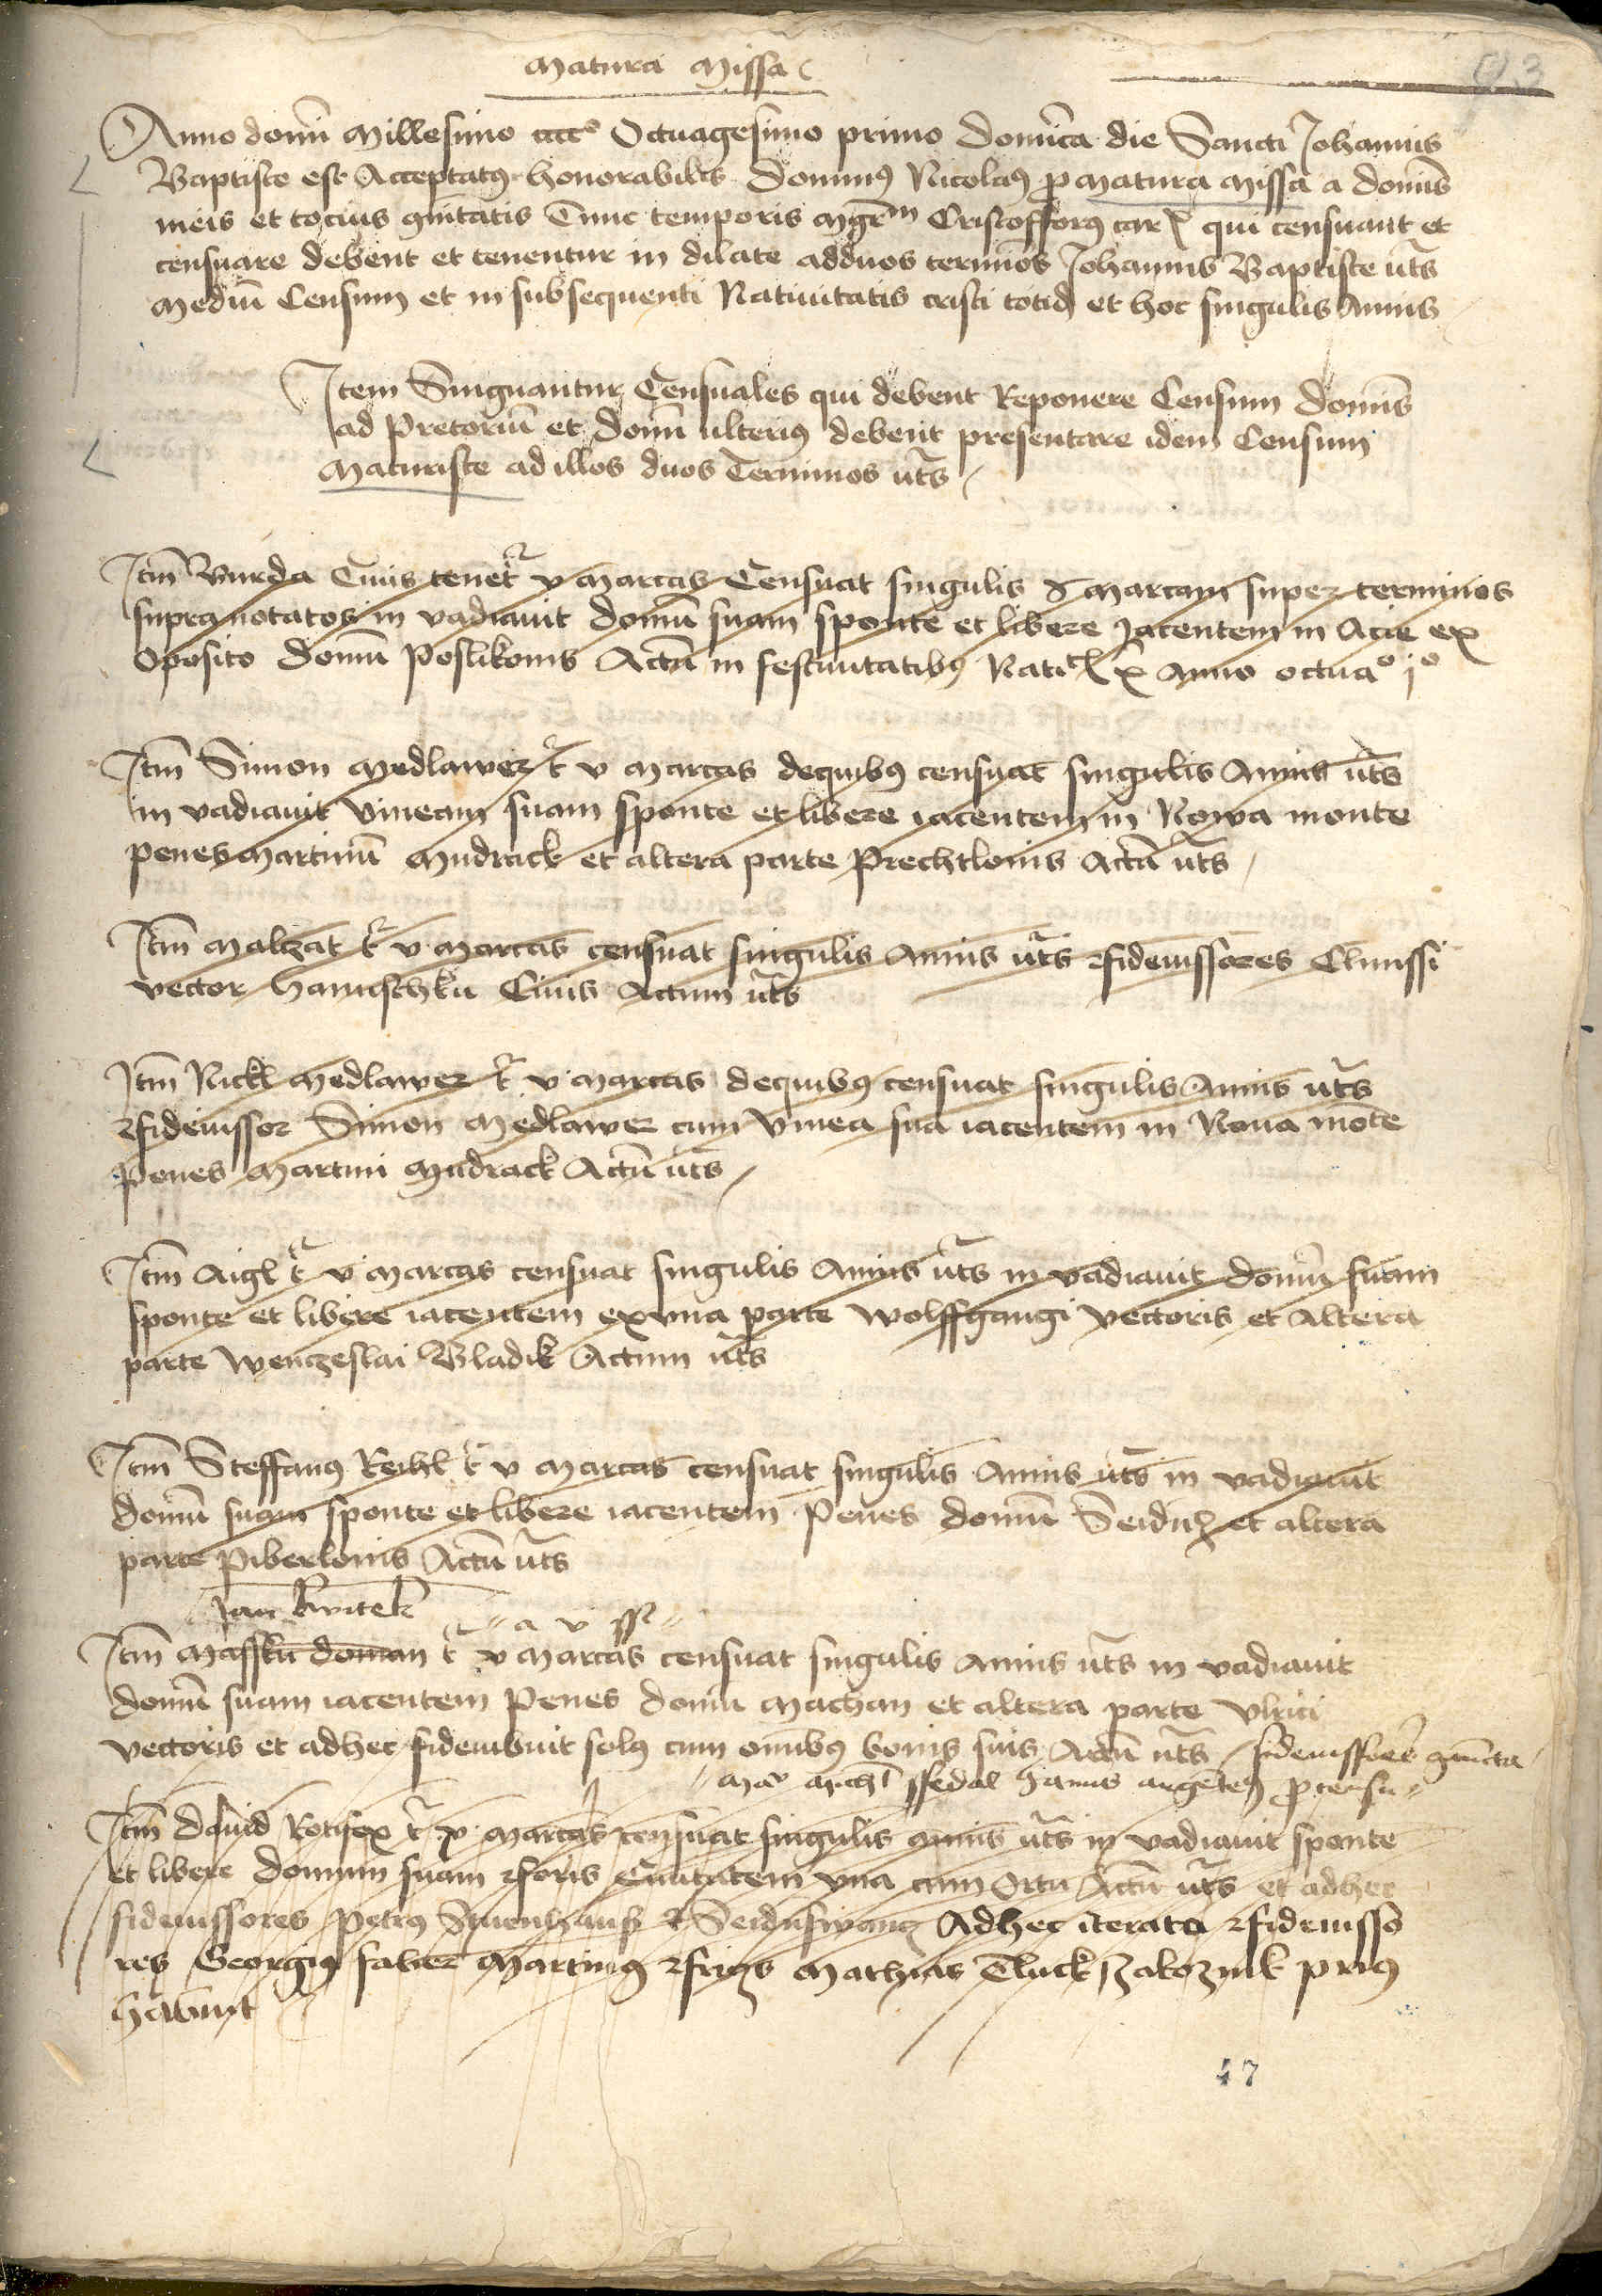 Matura Missa
93
Anno domi Millesimo cccc° Octuagesimo primo Domica die Sancti Johannis
Baptiste est Acceptatus honorabiles Dominus Nicolaus pro matura missa a dominis
meis et tocius comitatis Tunc temporis mgrm Cristofforus qui censuant et
censuare debent et tenentur in dilate ad duos terminos Johannis Baptiste uts
Mediu Censum et in subsequenti Natiuitatis cristi totid et hoc singulis Annis
Item Singuantur Censuales qui debent Reponere Censum dominis
ad Pretoriu et domi ulterius debent presentare idem Censum
Maturiste ad illos duos Terminos uts
Itm Burda Ciuis tenetr v marcas Censuat singulis marcam super terminos
supra notatos in vadiauit domu suam sponte et libere Jacentem in Acie ex
Oposito domu Poslikonis Actu in festiuitatibus Anno octua° j°
Itm Simon Medlawer tr v marcas de quibus censuat singulis Annis uts
in vadiauit vineam suam sponte et libere iacentem in Nowa monte
penes Martinu Mudrack et altera parte Prechtlonis Actu uts
Itm Malczat tr v marcas censuat singulis Annis uts fideiussores Clmssi
vector Hanuschku Ciuis Actum uts
Itm Nickl Medlawer tr v marcas de quibus censuat singulis Annis uts
fideiussor Simon Medlawer cum vinea sua iacentem in Noua mote
penes Martini Mudrack Actu uts
Itm Aigl tr v marcas censuat singulis Annis uts in vadiauit domu suam
sponte et libere iacentem ex una parte Wolffgangi vectoris et Altera
parte Wenczeslai Bladik Actum uts
Itm Steffanus Reihl tr v marcas censuat singulis Annis uts in vadiauit
domu suam sponte et libere iacentem Penes domu Seidlicz et altera
parte Piberlonis Actu uts
Jan kwitek
a v ss
Itm Massku doman tr v marcas censuat singulis Annis uts in vadiauit
domu suam iacentem Penes domu Machan et altera parte Vlrici
vectoris et adhec fideiubuit solus cum omibus bonis suis Actu uts fideiussores
ssedal Hanus
Itm Dauid Rotifex tr v marcas censuat singulis annis uts in vadiauit sponte
et libere domum suam foris Ciuitatem vna cum Ortu Actu uts et adhec
fideiussores Petrus Adhec iterato fideiusso
res Georgius faber Martinus Mathias Tluck
habunt
47